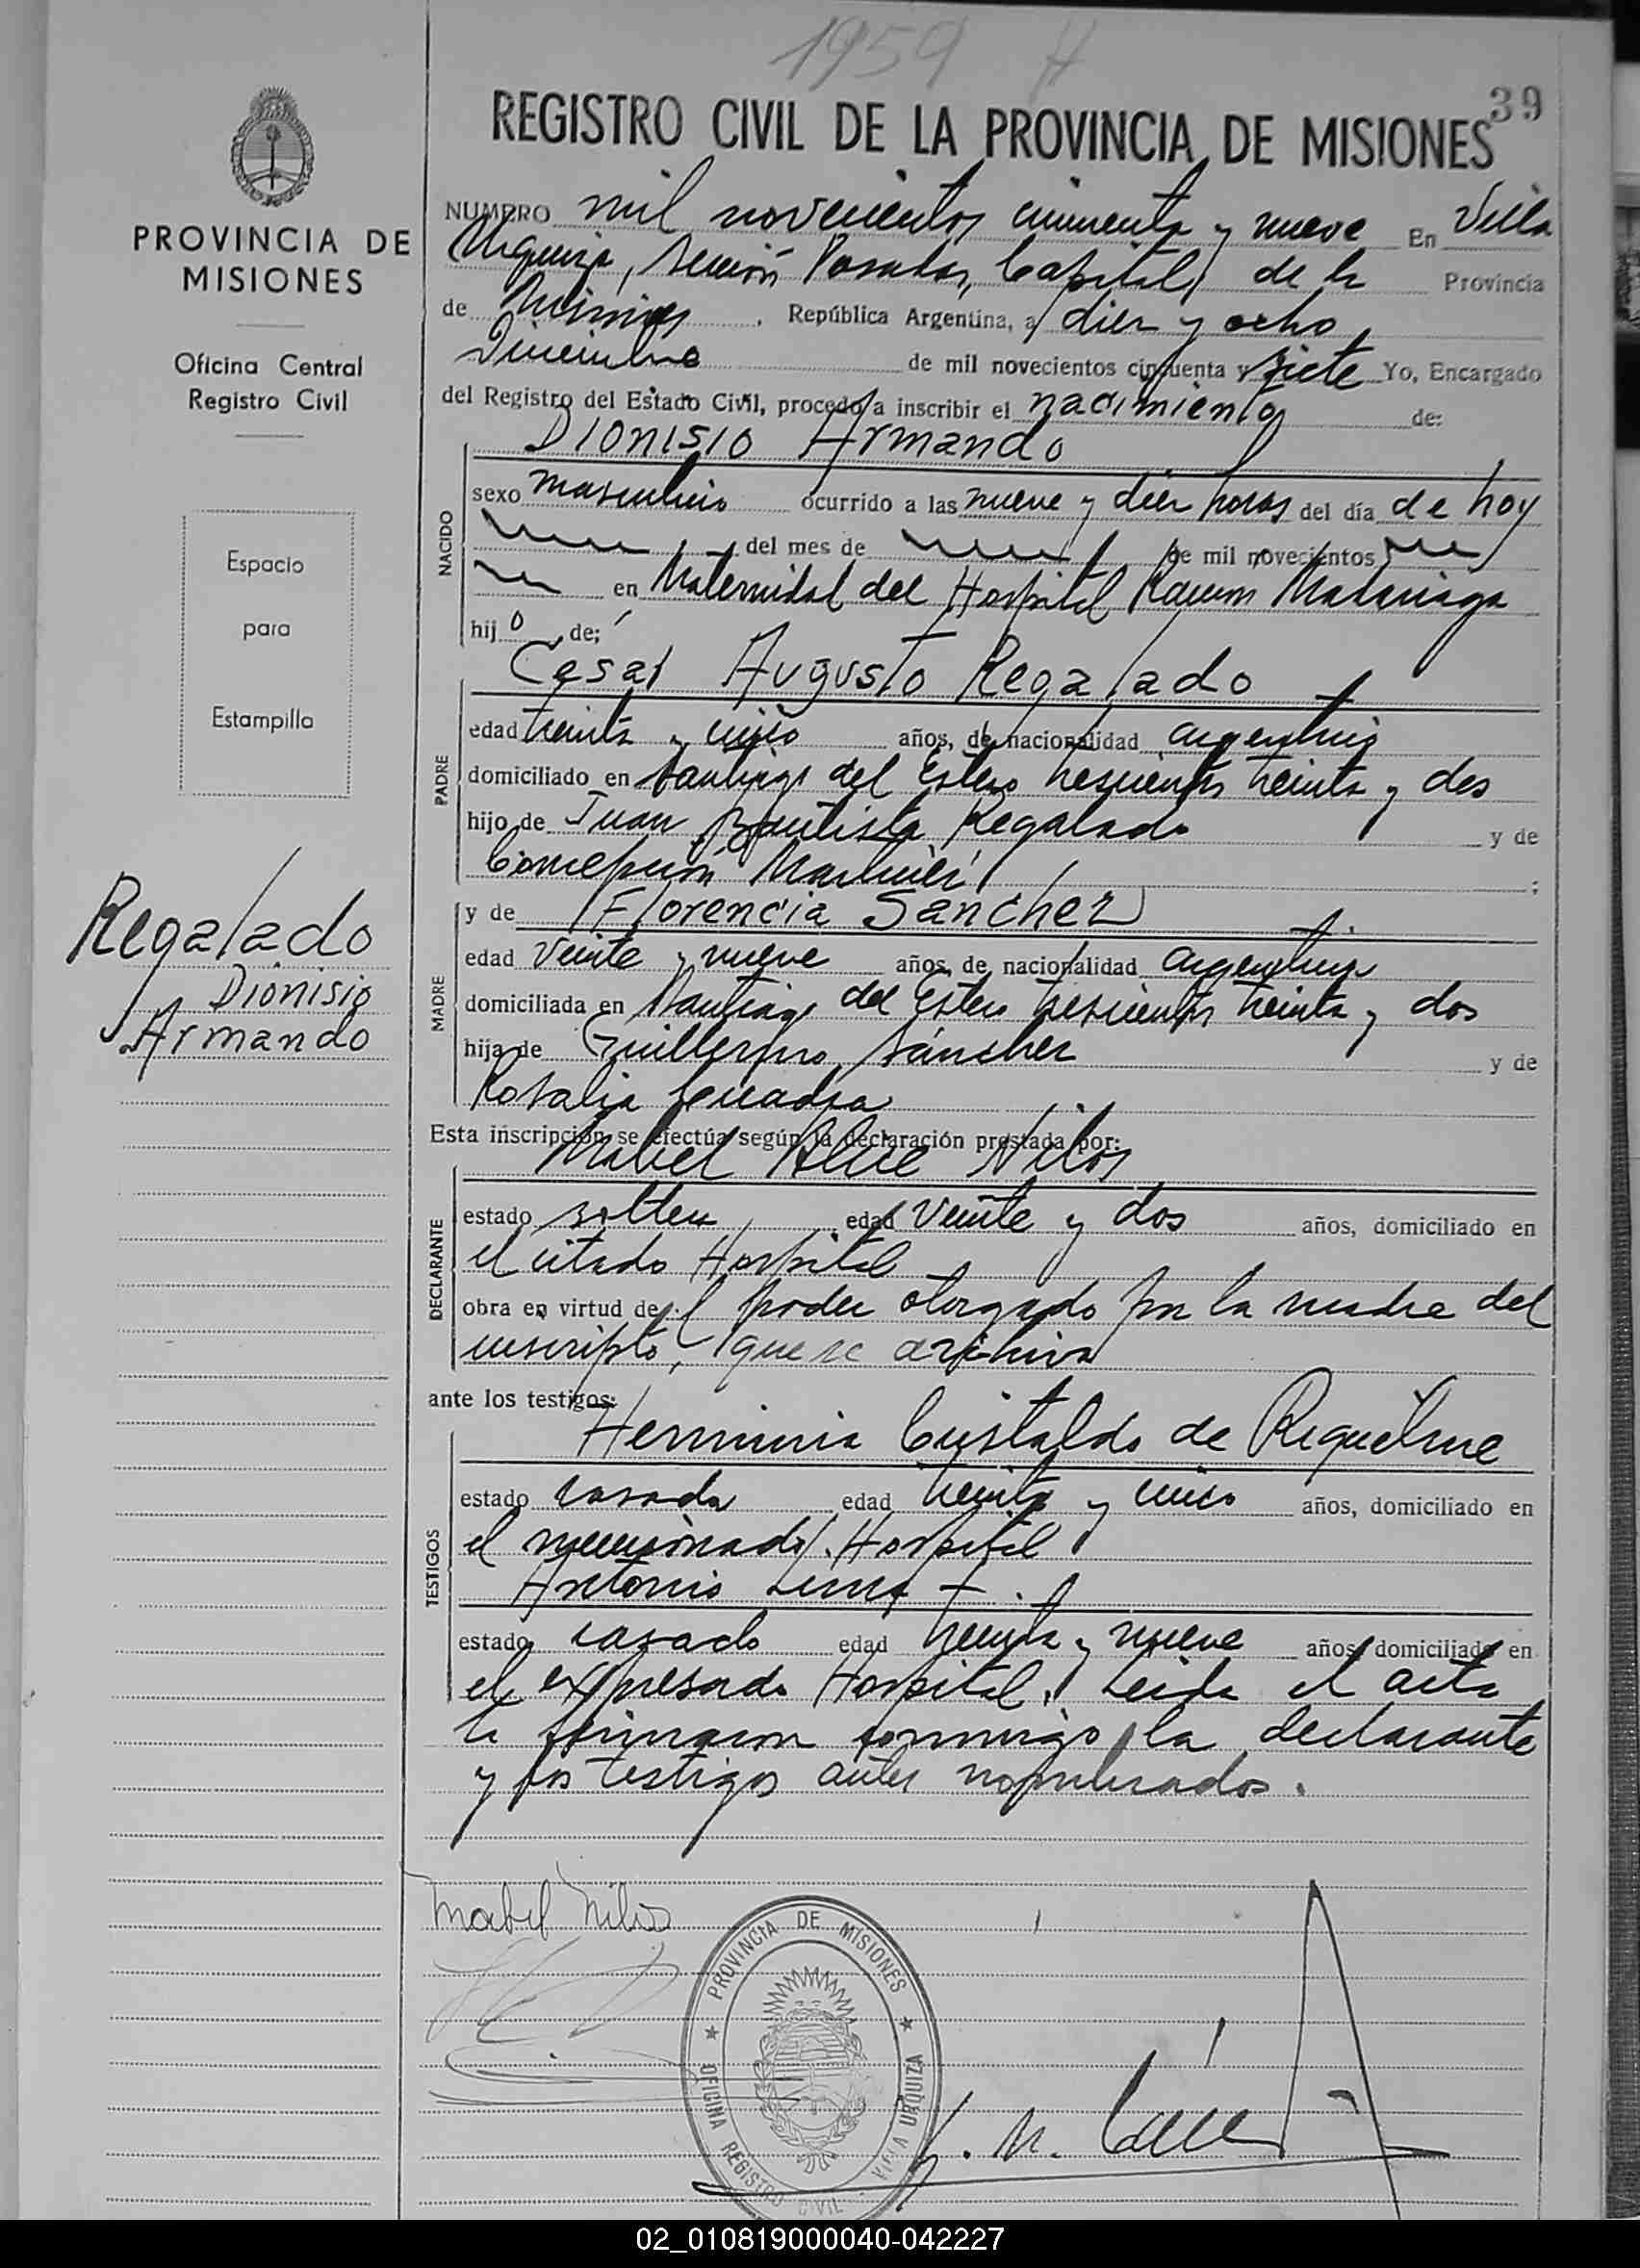 1959 A
39
REGISTRO CIVIL DE LA PROVINCIA DE MISIONES
PROVINCIA DE
MISIONES
Oficina Central
Registro Civil
Espacio
para
Estampilla
Regalado
Dionisio
Armando
NUMERO mil novecientos cincuenta y nueve En Villa
Urquiza, sección Posadas, Capital de la Provincia
de Misiones, República Argentina, a dies y ocho
Diciembre de mil novecientos cincuenta y siete Yo, Encargado
del Registro del Estado Civil, procedo a inscribir el nacimiento de:
Dionisio Armando
NACIDO
sexo masculino ocurrido a las nueve y diez horas del día de hoy
del mes de de mil novecientos
en Maternidad del Hospital Ramon Madariaga
hijo de:
Cesar Augusto Regalado
PADRE
edad treinta y cinco años, de nacionalidad argentino
domiciliado en Santiago del Estero trescientos treinta y dos
hijo de Juan Bautista Regalado y de
Concepción Martinez ;
MADRE
y de Florencia Sanchez
edad veinte y nueve años, de nacionalidad argentina
domiciliada en Santiago del Estero trescientos treinta y dos
hija de Guillermo Sánchez y de
Rosalia Cuadra
Esta inscripción se efectúa según la declaración prestada por:
Mabel Nilos
DECLARANTE
estado soltera edad veinte y dos años, domiciliado en
el citado Hospital
obra en virtud del poder otorgado por la madre del
inscripto, que se archiva
ante los testigos:
Herminia Cristaldo de Riquelme
TESTIGOS
estado casada edad treinta y cinco años, domiciliado en
el mencionado Hospital
Antonio
estado casado edad treinta y nueve años, domiciliado en
el expresado Hospital. Leida el acta
la firmaron conmigo la declarante
y los testigos antes nombrados.
Mabel Nilos
PROVINCIA DE MISIONES
OFICINA REGISTRO CIVIL - VILLA URQUIZA
02_010819000040-042227